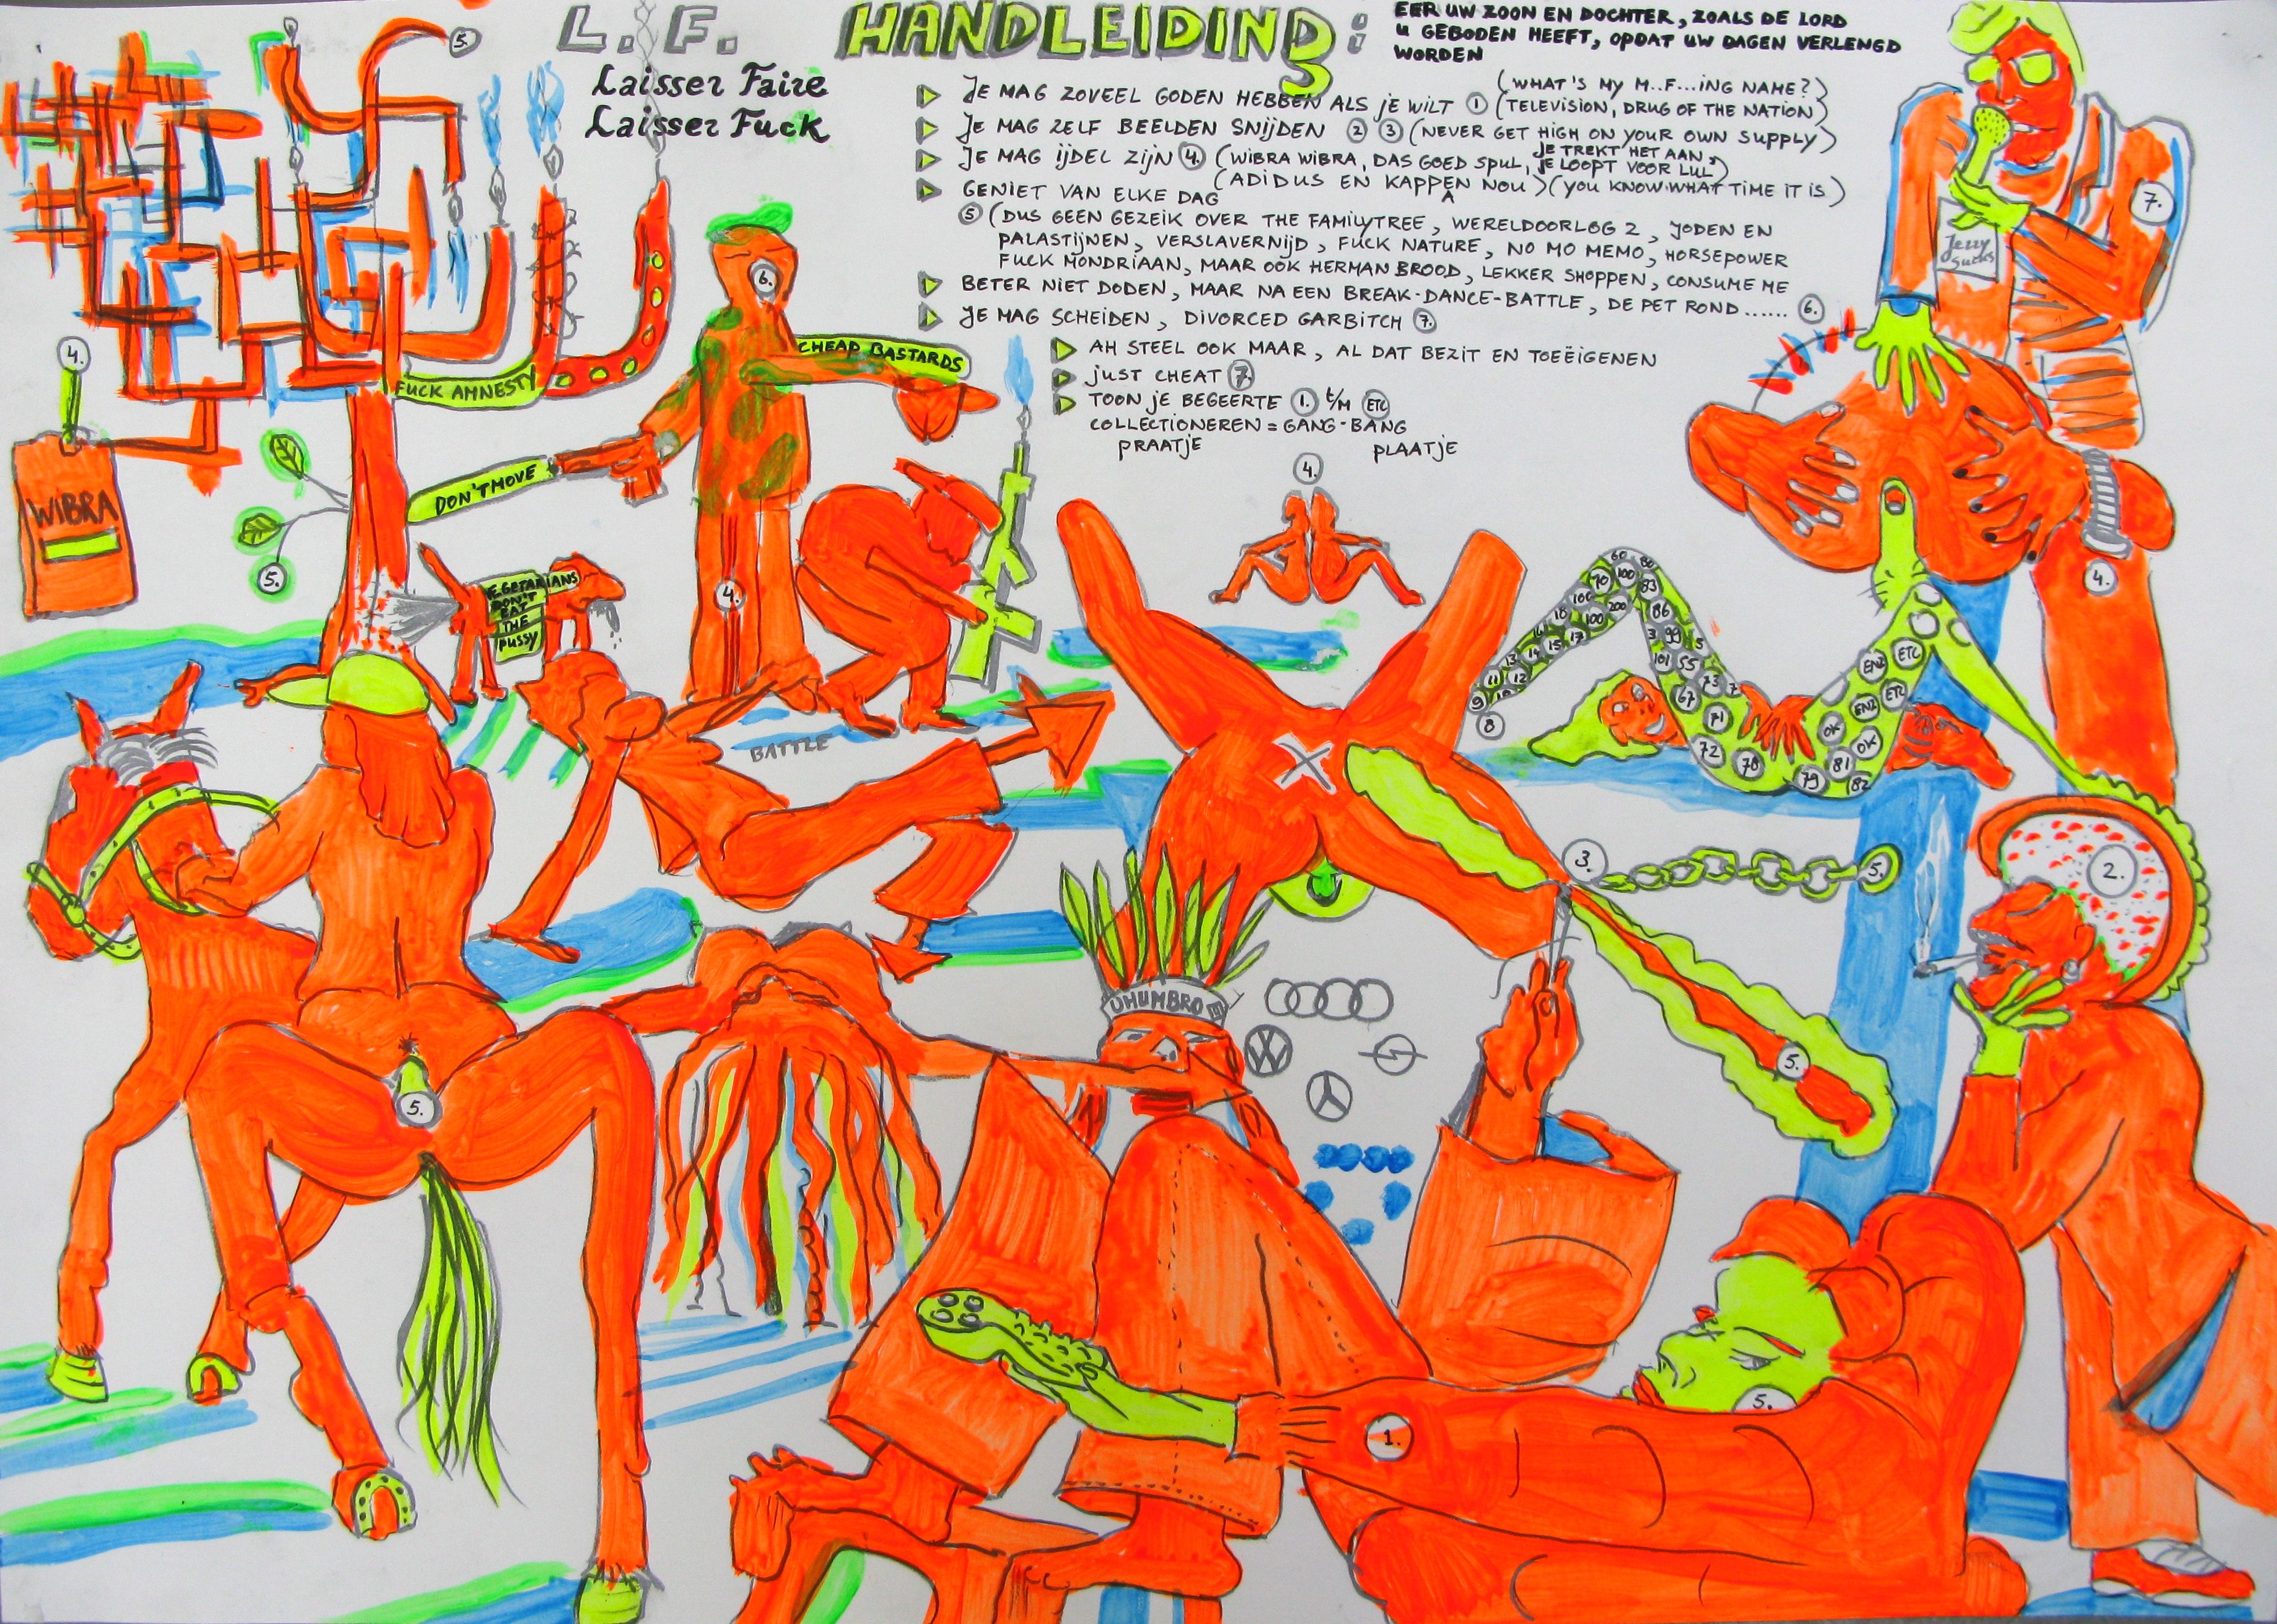 L. F.
Laisser Faire
Laisser Fuck
HANDLEIDING:
EER UW ZOON EN DOCHTER, ZOALS DE LORD
U GEBODEN HEEFT, OPDAT UW DAGEN VERLENGD
WORDEN
(WHAT'S MY M..F...ING NAME?)
JE MAG ZOVEEL GODEN HEBBEN ALS JE WILT 1 (TELEVISION, DRUG OF THE NATION)
JE MAG ZELF BEELDEN SNIJDEN 2 3 (NEVER GET HIGH ON YOUR OWN SUPPLY)
JE MAG IJDEL ZIJN 4. (WIBRA WIBRA, DAS GOED SPUL, JE TREKT HET AAN, JE LOOPT VOOR LUL)
(ADIDUS EN KAPPEN NOU) (YOU KNOW WHAT TIME IT IS)
GENIET VAN ELKE DAG
5 (DUS GEEN GEZEIK OVER THE FAMILYTREE, WERELDOORLOG 2, JODEN EN
PALASTIJNEN, VERSLAVERNIJD, FUCK NATURE, NO MO MEMO, HORSEPOWER
FUCK MONDRIAAN, MAAR OOK HERMAN BROOD, LEKKER SHOPPEN, CONSUME ME
BETER NIET DODEN, MAAR NA EEN BREAK-DANCE-BATTLE, DE PET ROND...... 6.
JE MAG SCHEIDEN, DIVORCED GARBITCH 7.
AH STEEL OOK MAAR, AL DAT BEZIT EN TOEËIGENEN
JUST CHEAT 7.
TOON JE BEGEERTE 1. t/m ETC
COLLECTIONEREN = GANG-BANG
PRAATJE PLAATJE
5.
7.
Jezzy
Sucks
6.
CHEAP BASTARDS
4.
FUCK AMNESTY
DON'T MOVE
WIBRA
5.
VEGETARIANS
DON'T
EAT
THE
PUSSY
4.
4.
4.
BATTLE
60 80
70 100 83
100 200 86
18 100 3 99 5
16 15 17 101 55
13 14 67 73 7
11 12 71
9 10 72 78
8 79 81 82
OK OK
ENZ ETC
ENZ ETC
3.
5.
2.
UHUMBRO
5.
5.
1.
5.